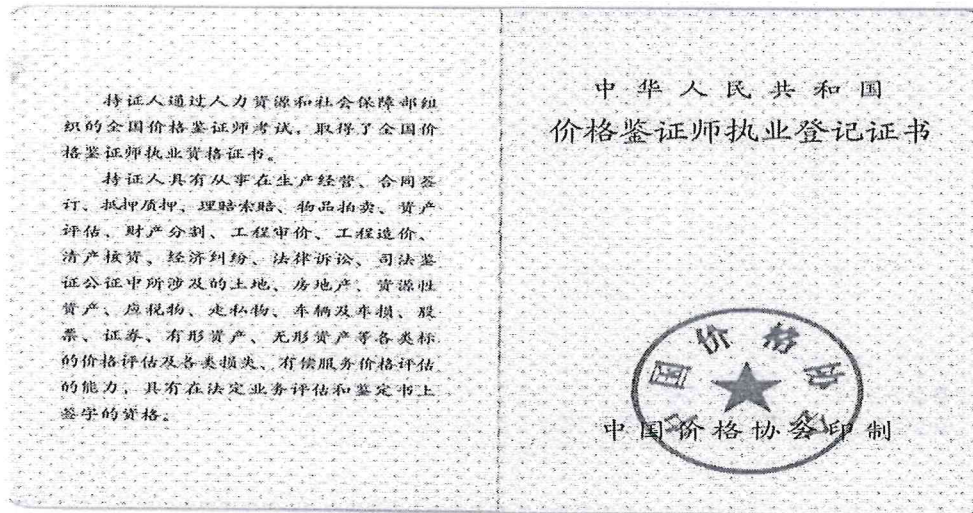 持证人通过人力资源和社会保障部组
织的全国价格鉴证师考试，取得了全国价
格鉴证师执业资格证书。
持证人具有从事在生产经营、合同签
订、抵押质押、理赔索赔、物品拍卖、资产
评估、财产分割、工程审价、工程造价、
清产核资、经济纠纷、法律诉讼、司法鉴
证公证中所涉及的土地、房地产、资源性
资产、应税物、走私物、车辆及车损、股
票、证券、有形资产、无形资产等各类标
的价格评估及各类损失、有偿服务价格评估
的能力，具有在法定业务评估和鉴定书上
签字的资格。
中华人民共和国
价格鉴证师执业登记证书
中国价格协会
中国价格协会印制